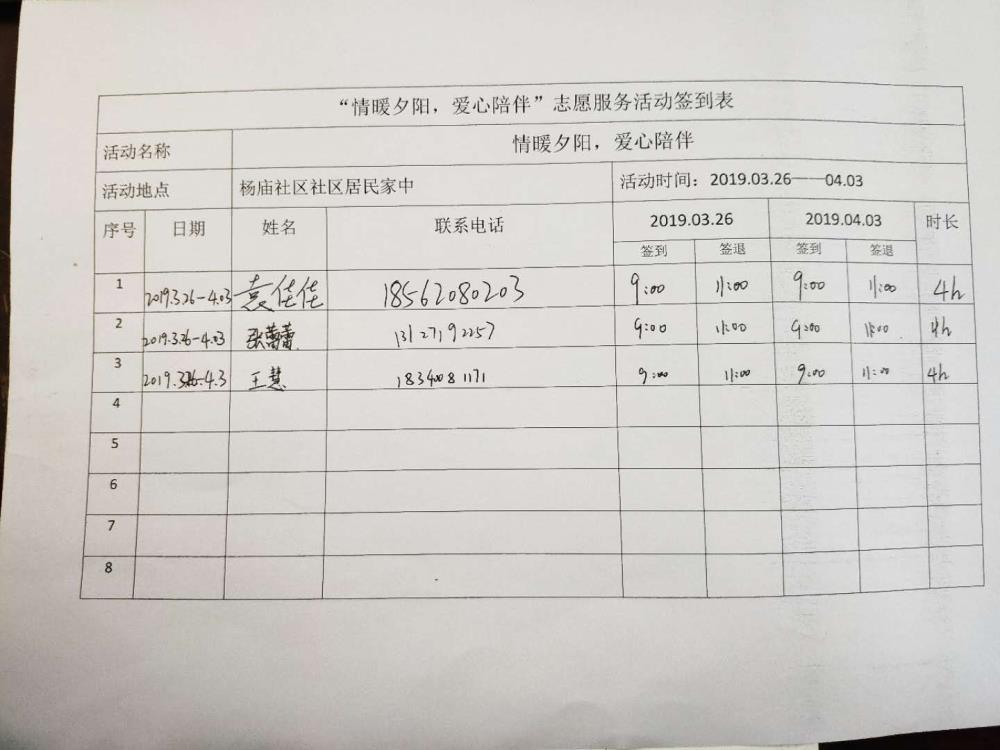 “情暖夕阳，爱心陪伴”志愿服务活动签到表
活动名称 情暖夕阳，爱心陪伴
活动地点 杨庙社区社区居民家中 活动时间：2019.03.26——04.03
序号 日期 姓名 联系电话 2019.03.26 2019.04.03 时长
签到 签退 签到 签退
1 2019.3.26-4.03 袁佳佳 18562080203 9:00 11:00 9:00 11:00 4h
2 2019.3.26-4.03 张蕾蕾 13127192257 9:00 11:00 9:00 11:00 4h
3 2019.3.26-4.3 王慧 18340081171 9:00 11:00 9:00 11:00 4h
4
5
6
7
8